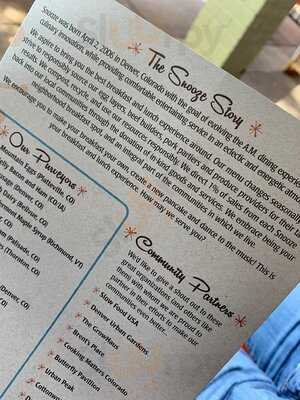 The Snooze Story
Snooze was born April 2, 2006 in Denver, Colorado with the goal of evolving the A.M. dining experience
culinary innovation, while providing comfortable entertaining service in an eclectic and energetic
We aspire to bring you the best breakfast and lunch experience around. Our menu changes seasonally
strive to responsibly source our eggs, layers, beef
results. We compost, recycle and use our resources responsibly. We give 1% of sales from each Snooze
back into our local community through the donation of in-kind goods and services. We embrace being your
neighborhood breakfast spot, and an integral part of the communities in which we live.
We encourage you to make your breakfast your own, create a new pancake and dance to the music! This is
your breakfast and lunch experience. How may we serve you?
Our Purveyors
Mountain Eggs (Platteville, CO)
Bacon and Ham (CO, IA)
(Denver, CO)
Dairy
Maple Syrup (Richmond, VT)
(Palisade, CO)
(Thornton, CO)
Community Partners
We'd like to give a shout out to these
great organizations (and others like
them) with whom we are proud to
partner in their efforts to make our
communities even better...
Slow Food USA
Denver Urban Gardens
The GrowHaus
Brent's Place
Cooking Matters Colorado
Butterfly Pavilion
Urban Peak